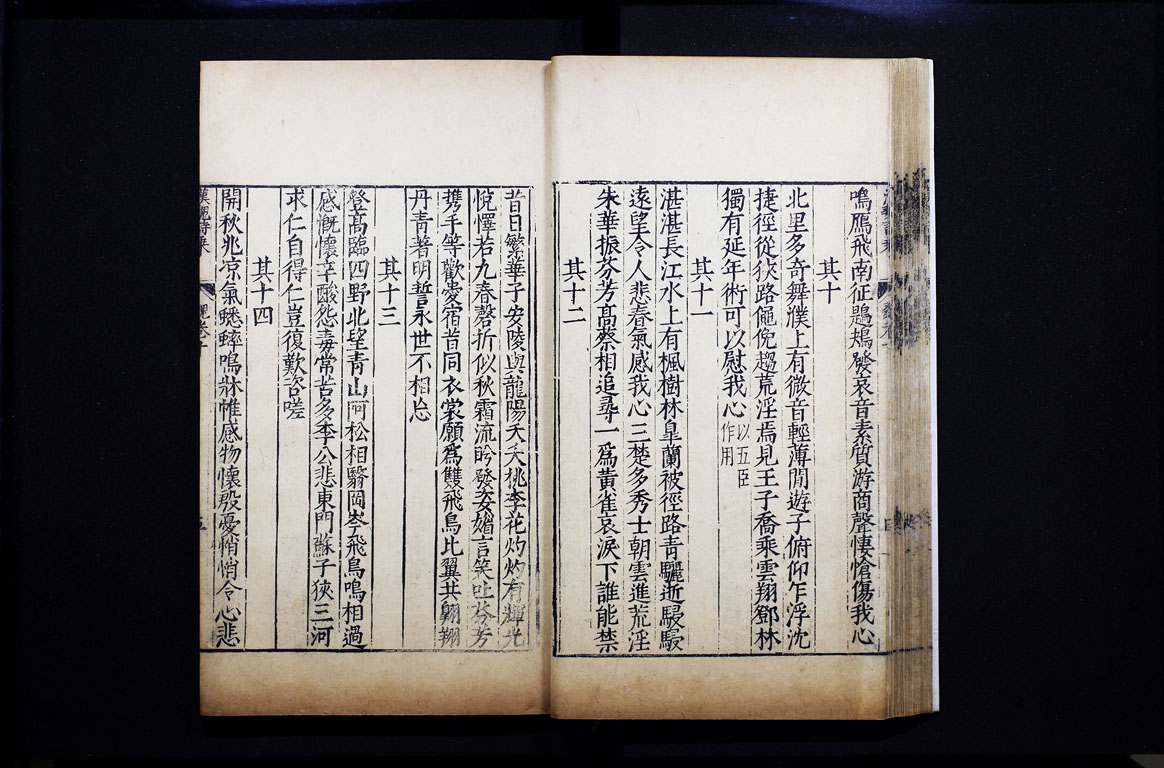 鳴鴈飛南征鶗鴂發哀音素質游商聲悽愴傷我心
其十
北里多奇舞濮上有微音輕薄閒遊子俯仰乍浮沈
捷徑從狹路僶俛趨荒淫焉見王子喬乘雲翔鄧林
獨有延年術可以慰我心以五臣作用
其十一
湛湛長江水上有楓樹林皐蘭被徑路青驪逝駸駸
遠望令人悲春氣感我心三楚多秀士朝雲進荒淫
朱華振芬芳高蔡相追尋一爲黃雀哀淚下誰能禁
其十二
昔日繁華子安陵與龍陽夭夭桃李花灼灼有輝光
恱懌若九春磬折似秋霜流盻發姿媚言笑吐芬芳
携手等歡愛宿昔同衣裳願爲雙飛鳥比翼共翱翔
丹青著明誓永世不相忘
其十三
登高臨四野北望青山阿松柏翳岡岑飛鳥鳴相過
感慨懷辛酸怨毒常苦多李公悲東門蘇子狹三河
求仁自得仁豈復歎咨嗟
其十四
開秋兆凉氣蟋蟀鳴牀帷感物懷殷憂悄悄令心悲
漢魏詩乘
魏卷一
五